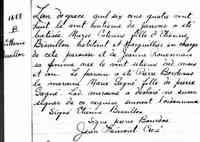 1888
B.
Etienne
Brouillon
L'an de grace mil six cens quatre vint
huit le vint huitieme de janvier a été
batisée Marie Catrine fille d'Etienne
Brouillon habitant et Marguillier en charge
de cette paroisse et de Jeanne
sa femme née le vint uieme dud. mois
et an. Le parain a eté Pierre Bardeau
La maraine Marie Segné fille de pierre
Segné. Lad. maraine a déclaré ne savoir
signer de ce requise suivant l'ordonnance
Signé Etienne Brouillon
Signé pierre Bourdeau
Jean Curé